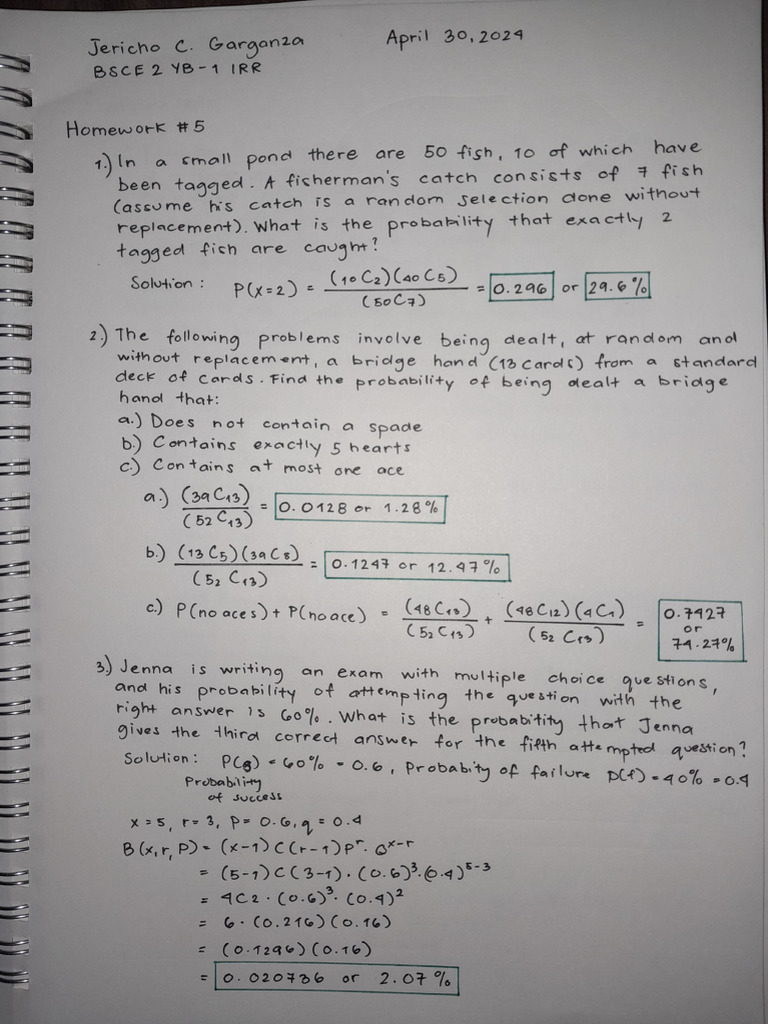 Jericho C. Garganza April 30, 2024
BSCE 2 YB-1 IRR
Homework #5
1.) In a small pond there are 50 fish, 10 of which have
been tagged. A fisherman's catch consists of 7 fish
(assume his catch is a random selection done without
replacement). What is the probability that exactly 2
tagged fish are caught?
Solution: P(x=2) = (10C2)(40C5) / (50C7) = 0.296 or 29.6%
2.) The following problems involve being dealt, at random and
without replacement, a bridge hand (13 cards) from a standard
deck of cards. Find the probability of being dealt a bridge
hand that:
a.) Does not contain a spade
b.) Contains exactly 5 hearts
c.) Contains at most one ace
a.) (39C13) / (52C13) = 0.0128 or 1.28%
b.) (13C5)(39C8) / (52C13) = 0.1247 or 12.47%
c.) P(no aces) + P(no ace) = (48C13) / (52C13) + (48C12)(4C1) / (52C13) = 0.7427 or 74.27%
3.) Jenna is writing an exam with multiple choice questions,
and his probability of attempting the question with the
right answer is 60%. What is the probability that Jenna
gives the third correct answer for the fifth attempted question?
Solution: P(s) = 60% = 0.6, Probabity of failure P(f) = 40% = 0.4
Probability
of success
x = 5, r = 3, P = 0.6, q = 0.4
B(x,r,P) = (x-1)C(r-1)P^r · Q^x-r
= (5-1)C(3-1) · (0.6)^3 · (0.4)^5-3
= 4C2 · (0.6)^3 · (0.4)^2
= 6 · (0.216)(0.16)
= (0.1296)(0.16)
= 0.020736 or 2.07%